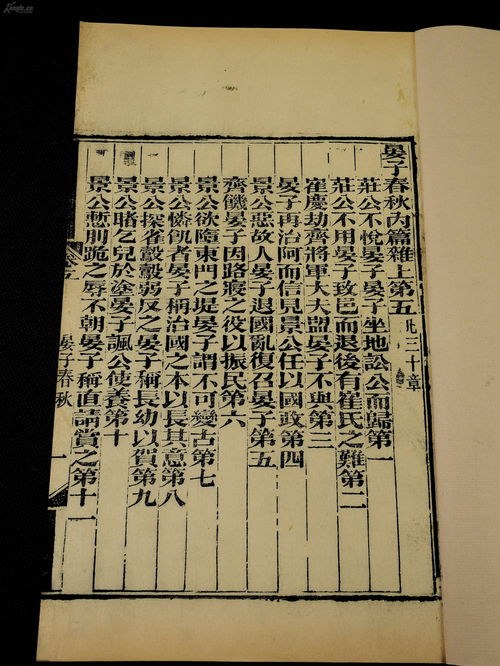 晏子春秋內篇雜上第五 凡三十章
莊公不悅晏子晏子坐地訟公而歸第一
莊公不用晏子致邑而退後有崔氏之難第二
崔慶劫齊將軍大夫盟晏子不與第三
晏子再治阿而信見景公任以國政第四
景公惡故人晏子退國亂復召晏子第五
齊饑晏子因路寢之役以振民第六
景公欲墮東門之堤晏子謂不可變古第七
景公憐飢者晏子稱治國之本以長其意第八
景公探雀鷇鷇弱反之晏子稱長幼以賀第九
景公睹乞兒於塗晏子諷公使養第十
景公慙刖跪之辱不朝晏子稱直請賞之第十一
晏子春秋
一